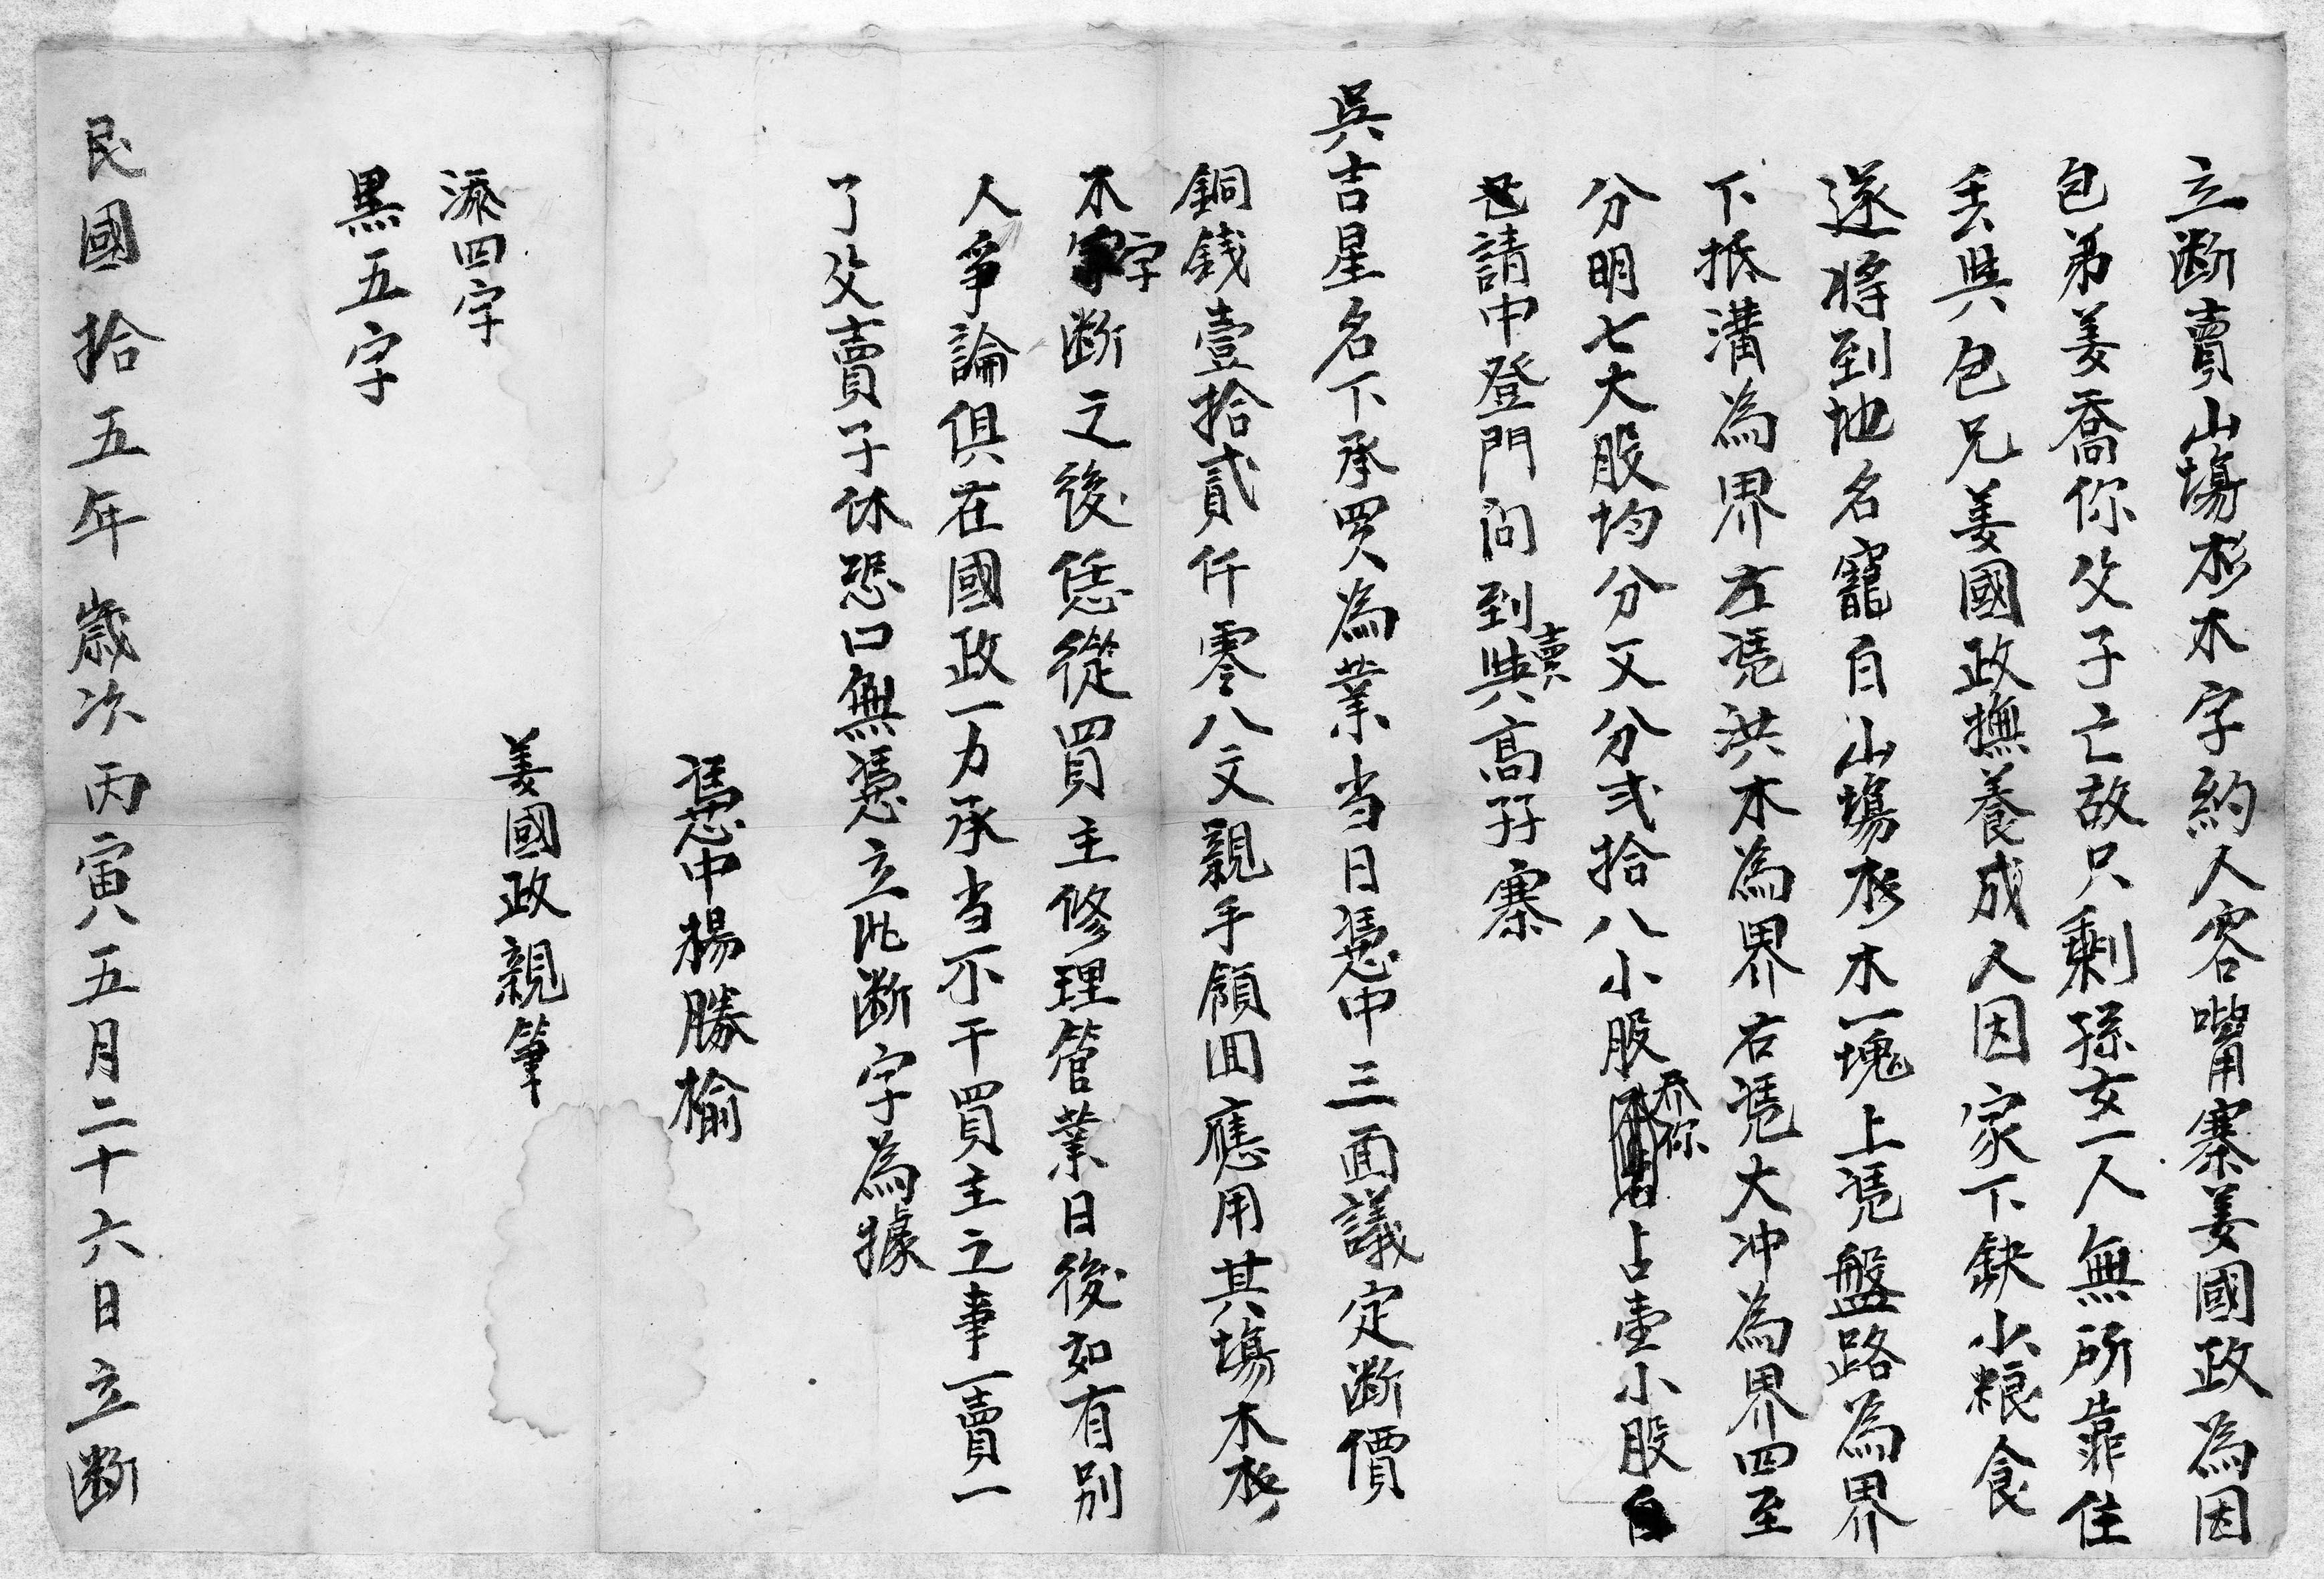 立断賣山塲杉木字約人容嘴寨姜國政為因
包弟姜喬你父子亡故只剩孫女一人無所靠住
丢與包兄姜國政撫養成人因家下缺少粮食
遂將到地名寵白山塲杉木一塊上凴盤路為界
下抵溝為界左凴洪木為界右凴大冲為界四至
分明七大股均分又分弍拾八小股喬你占壹小股自
己請中登門问到賣與高孖寨
吳吉星名下承買為業当日憑中三面議定断價
銅錢壹拾貳仟零八文親手領囬應用其塲木杉
木字断之後恁從買主修理管業日後如有別
人爭論俱在國政一力承当不干買主之事一賣一
了父賣子休恐口無憑立此断字為據
憑中楊勝榆
姜國政親筆
添四字
黑五字
民國拾五年歲次丙寅五月二十六日立断